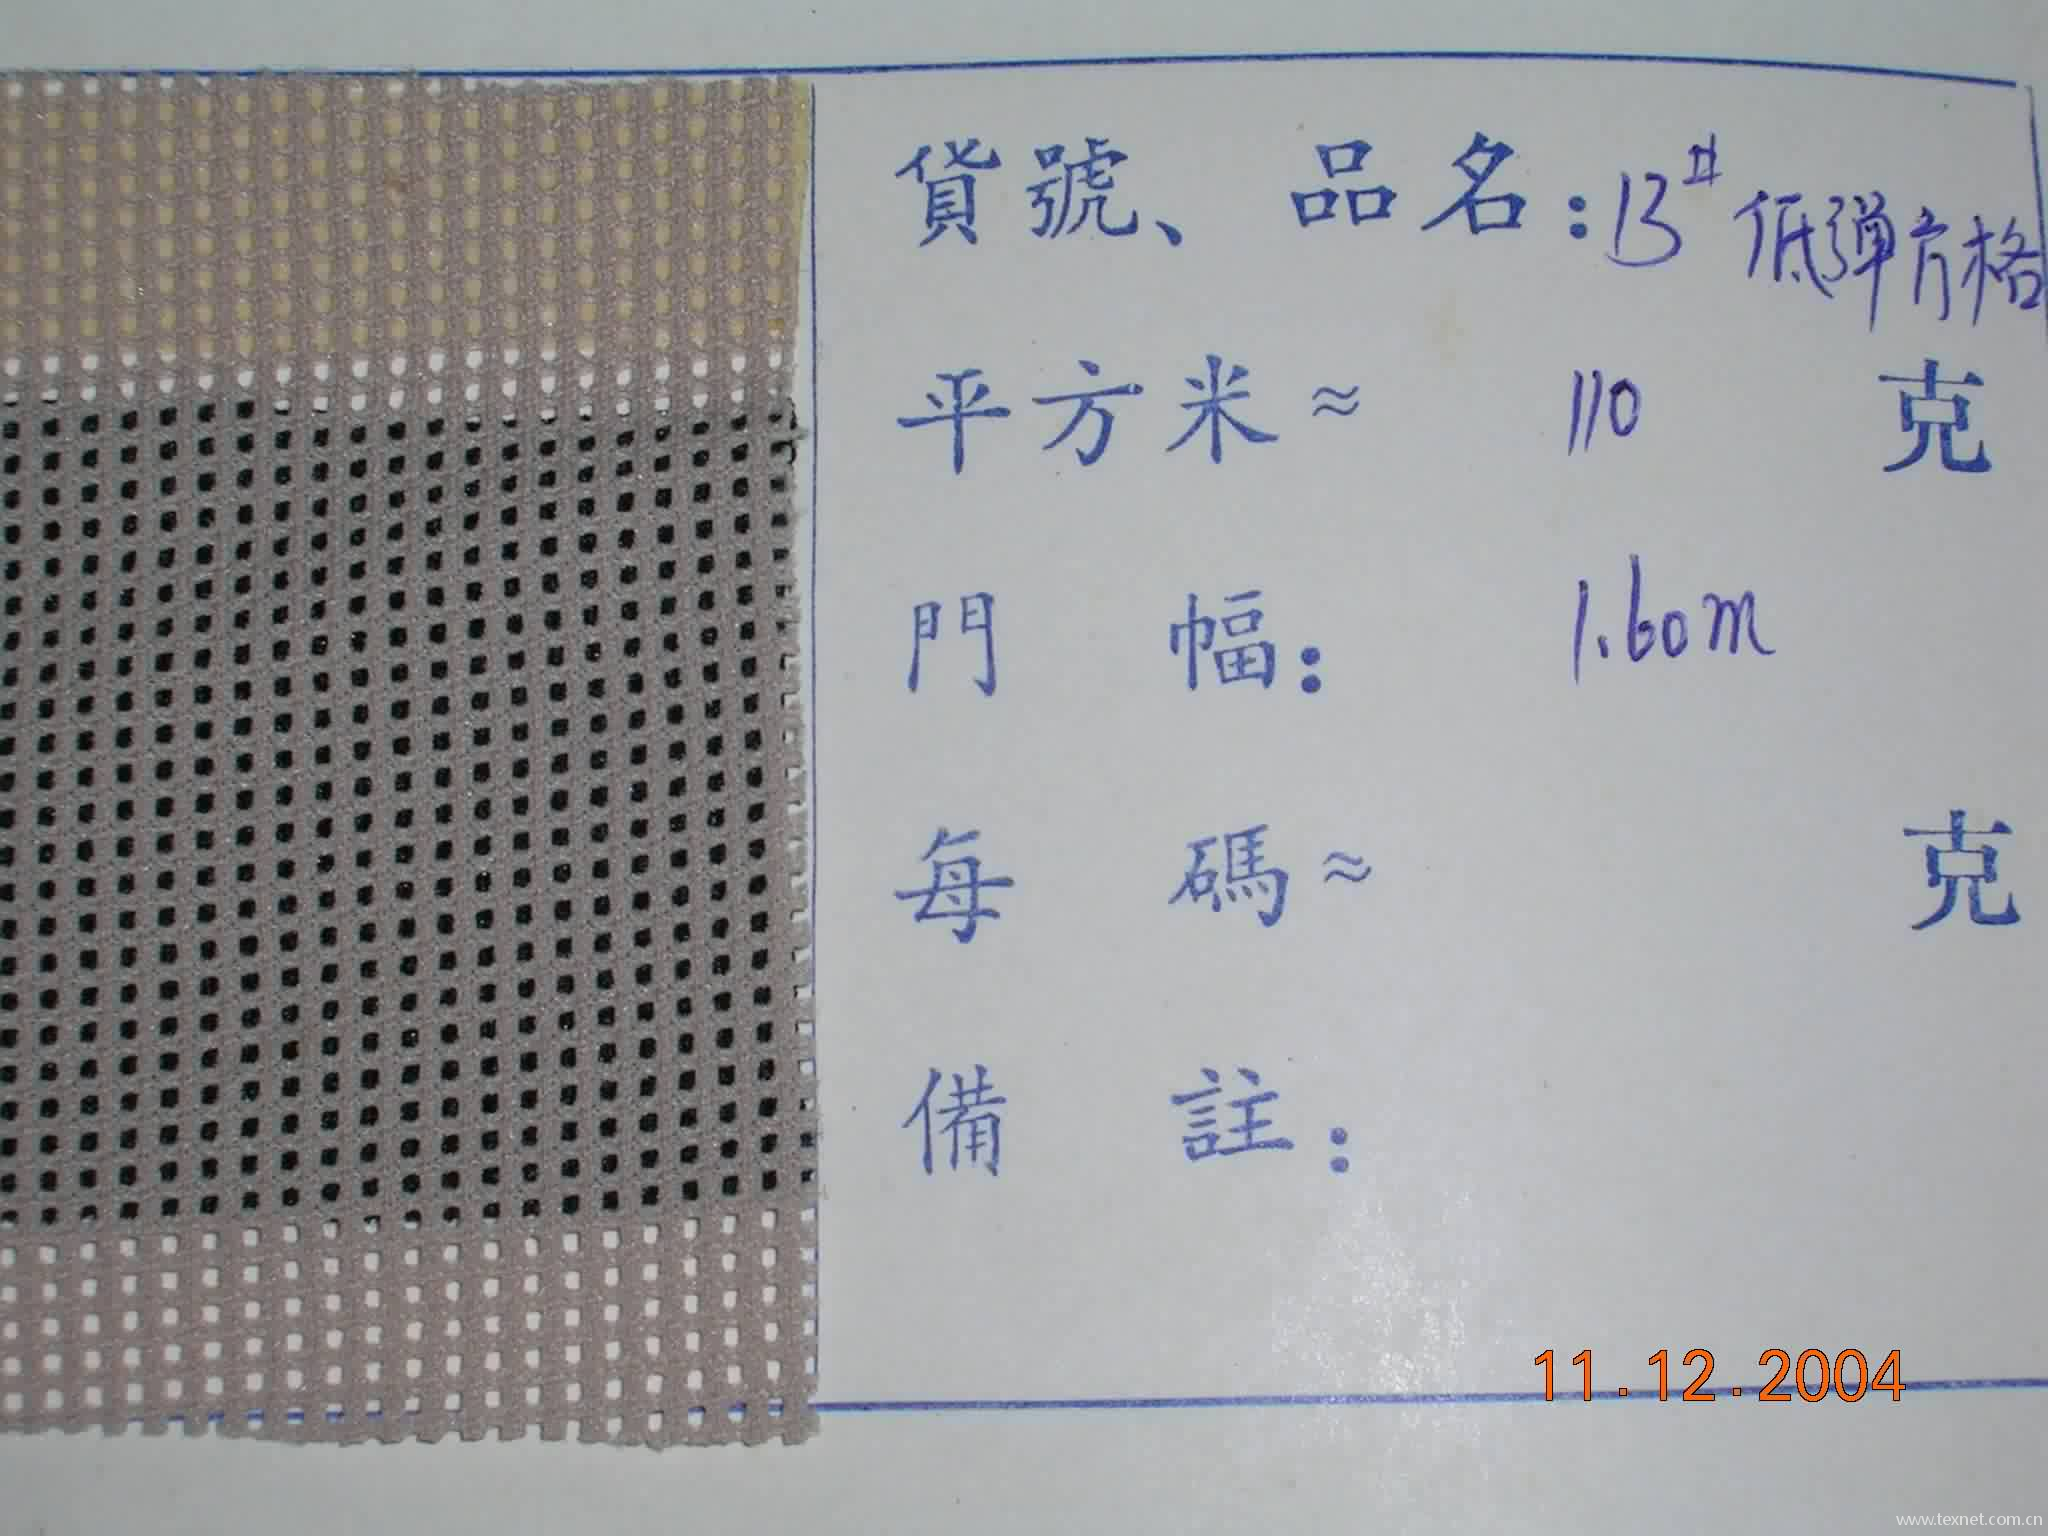 貨號、品名：13# 低弹方格
平方米≈ 110 克
門幅： 1.60m
每碼≈ 克
備註：
11.12.2004
www.texnet.com.cn